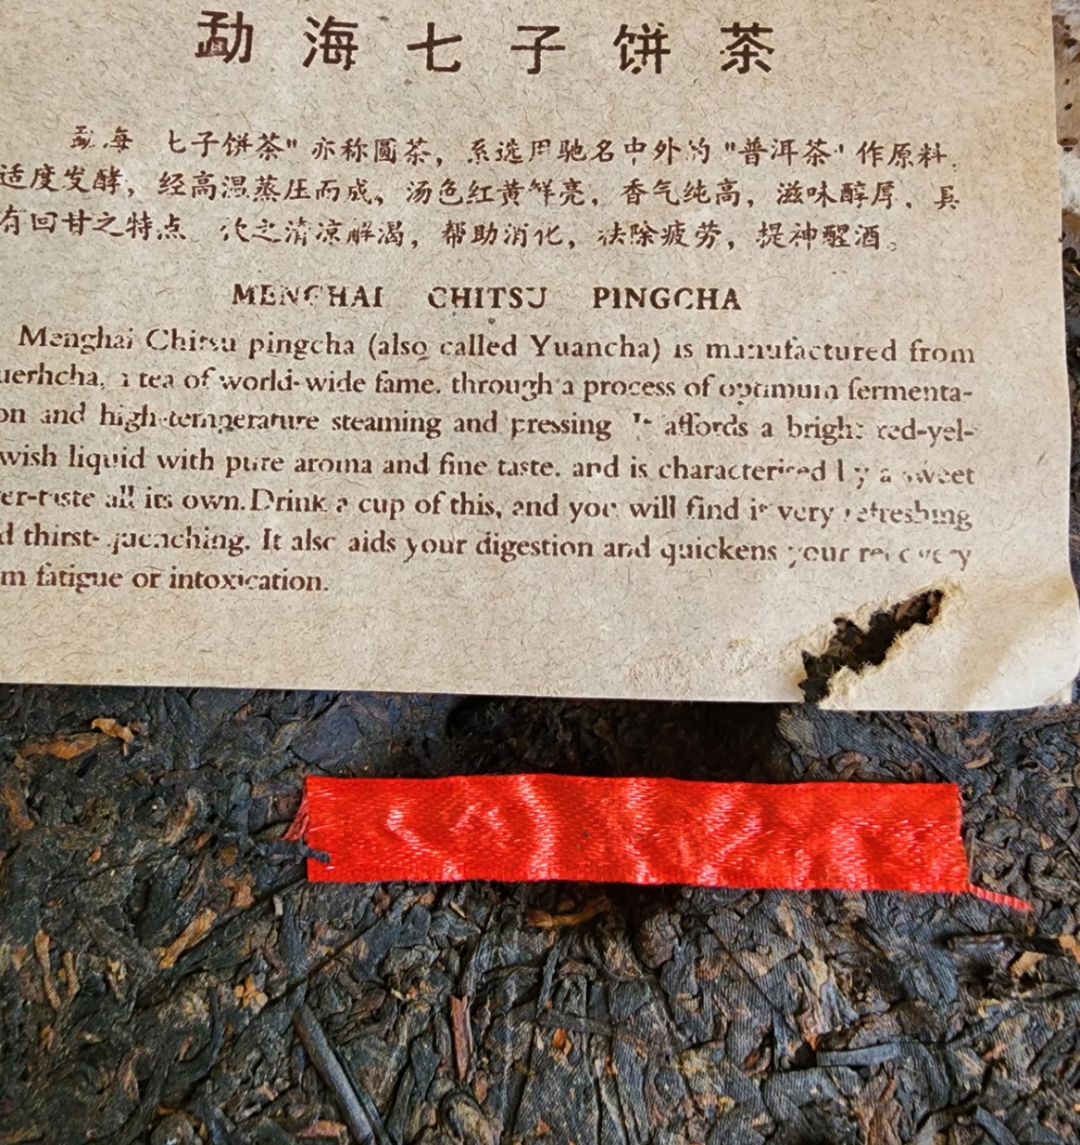 勐海七子饼茶
勐海 七子饼茶" 亦称圆茶，系选用驰名中外的 "普洱茶" 作原料，
适度发酵，经高温蒸压而成，汤色红黄鲜亮，香气纯高，滋味醇厚，具
有回甘之特点。饮之清凉解渴，帮助消化，祛除疲劳，提神醒酒。
MENGHAI CHITSU PINGCHA
Menghai Chitsu pingcha (also called Yuancha) is manufactured from
uerhcha, a tea of world-wide fame. through a process of optimum fermenta-
on and high-temperature steaming and pressing It affords a bright red-yel-
wish liquid with pure aroma and fine taste. and is characterised by a sweet
er-taste all its own. Drink a cup of this, and you will find it very refreshing
d thirst-quenching. It also aids your digestion and quickens your recovery
m fatigue or intoxication.